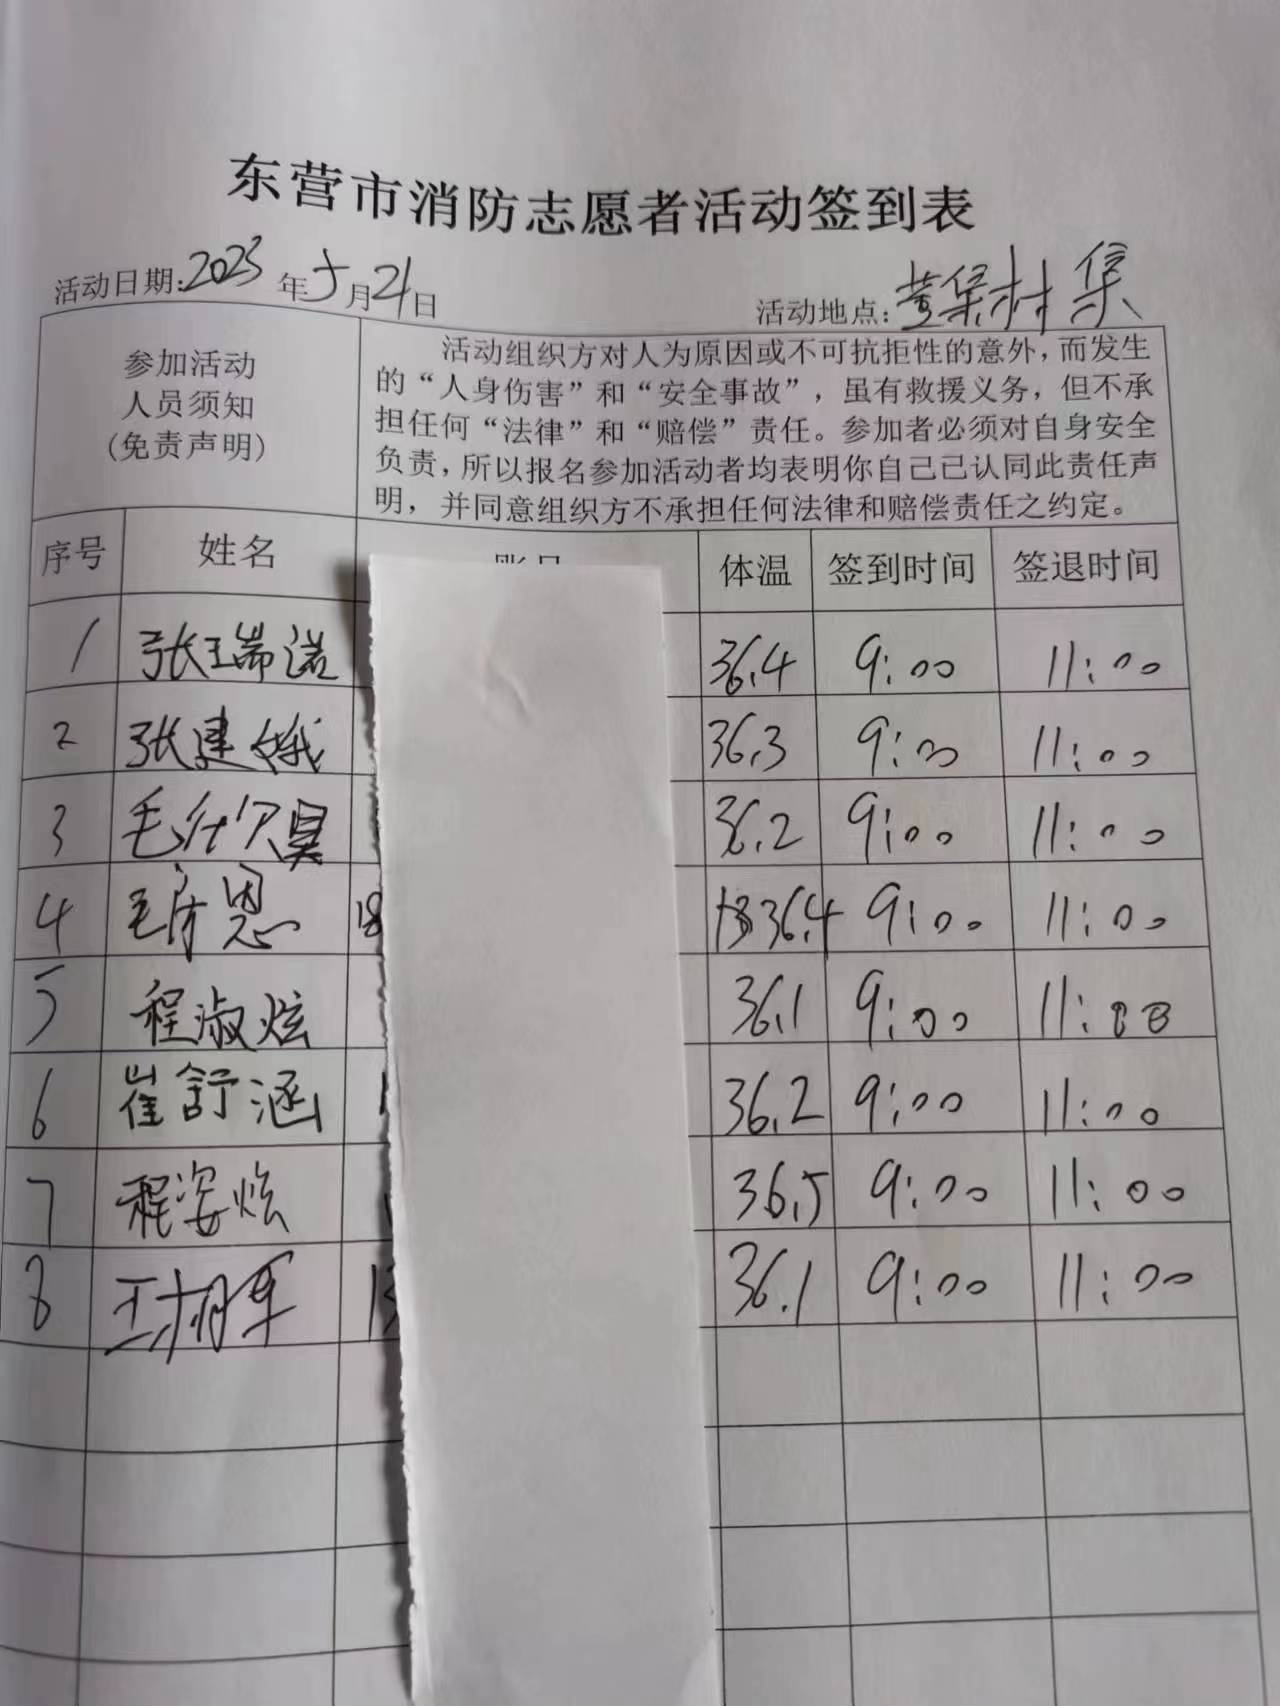 东营市消防志愿者活动签到表
活动日期:2023年5月21日 活动地点:董集村集
参加活动
人员须知
(免责声明)
活动组织方对人为原因或不可抗拒性的意外,而发生
的“人身伤害”和“安全事故”,虽有救援义务,但不承
担任何“法律”和“赔偿”责任。参加者必须对自身安全
负责,所以报名参加活动者均表明你自己已认同此责任声
明,并同意组织方不承担任何法律和赔偿责任之约定。
序号 姓名 体温 签到时间 签退时间
1 张瑞诺 36.4 9:00 11:00
2 张建娥 36.3 9:00 11:00
3 36.2 9:00 11:00
4 18 36.4 9:00 11:00
5 程淑炫 36.1 9:00 11:00
6 崔舒涵 1 36.2 9:00 11:00
7 程姿炫 36.5 9:00 11:00
8 13 36.1 9:00 11:00